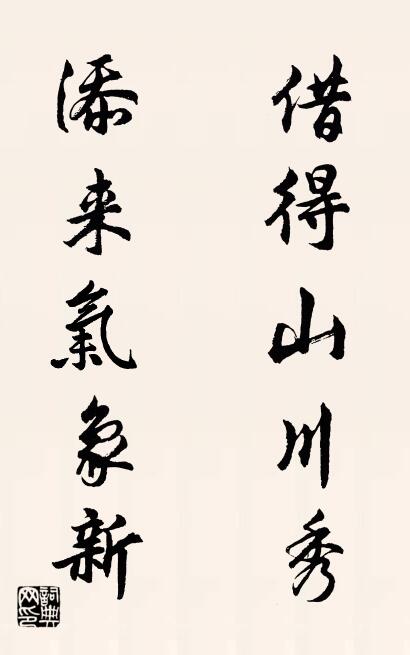 借得山川秀
添来氣象新
詞典網印